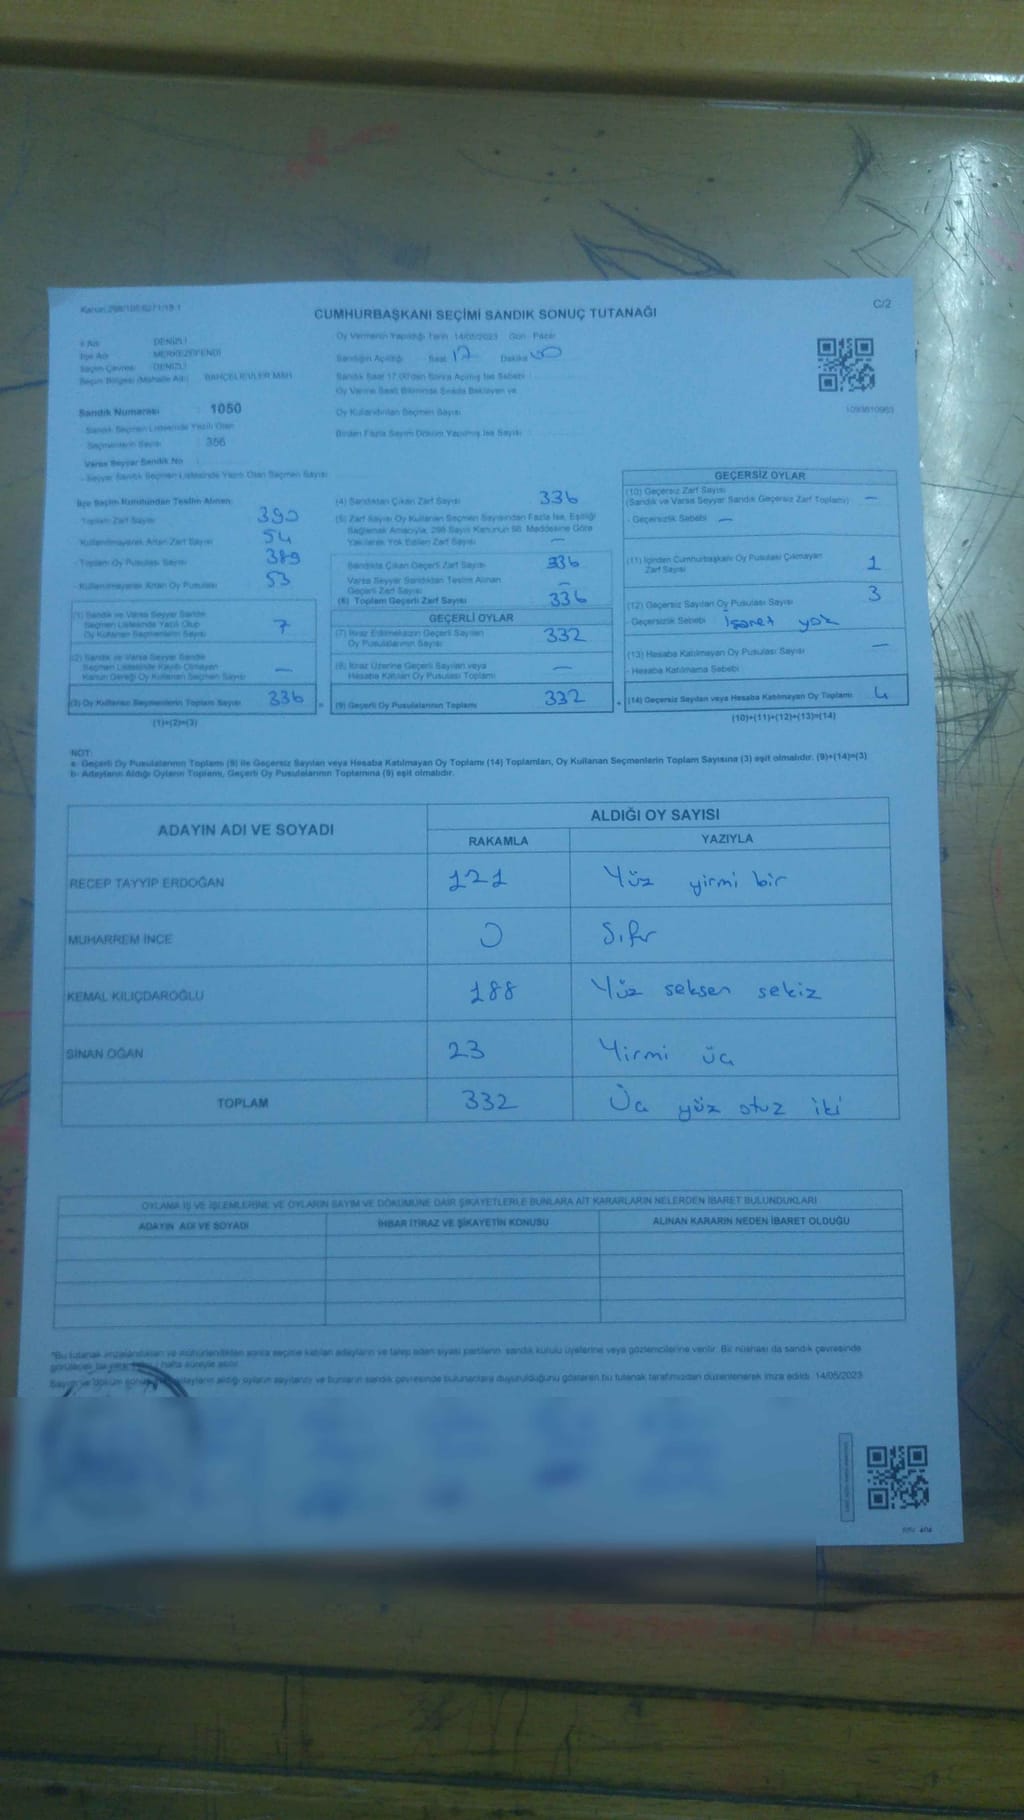 Karun:298/105 6271/18-1
C/2
CUMHURBAŞKANI SEÇİMİ SANDIK SONUÇ TUTANAĞI
İl Adı DENİZLİ
İlçe Adı MERKEZEFENDİ
Seçim Çevresi DENİZLİ
Seçim Bölgesi (Mahalle Adı) BAHÇELİEVLER MAH
Sandık Numarası : 1050
Sandık Seçmen Listesinde Yazılı Olan
Seçmenlerin Sayısı : 356
Varsa Seyyar Sandık No
- Seyyar Sandık Seçmen Listesinde Yazılı Olan Seçmen Sayısı
Oy Vermenin Yapıldığı Tarih 14/05/2023 Gün Pazar
Sandığın Açıldığı Saat 17 Dakika
Sandık Saat 17.00'den Sonra Açılmış İse Sebebi
Oy Verme Saati Bitiminde Sırada Bekleyen ve
Oy Kullandırılan Seçmen Sayısı
Birden Fazla Sayım Döküm Yapılmış İse Sayısı
1093610963
İlçe Seçim Kurulundan Teslim Alınan:
Toplam Zarf Sayısı 390
- Kullanılmayarak Artan Zarf Sayısı 54
- Toplam Oy Pusulası Sayısı 389
- Kullanılmayarak Artan Oy Pusulası 53
(1) Sandık ve Varsa Seyyar Sandık
Seçmen Listesinde Yazılı Olup
Oy Kullanan Seçmenlerin Sayısı 7
(2) Sandık ve Varsa Seyyar Sandık
Seçmen Listesinde Kayıtlı Olmayan
Kanun Gereği Oy Kullanan Seçmen Sayısı —
(3) Oy Kullanan Seçmenlerin Toplam Sayısı 336 =
(1)+(2)=(3)
(4) Sandıktan Çıkan Zarf Sayısı 336
(5) Zarf Sayısı Oy Kullanan Seçmen Sayısından Fazla İse, Eşitliği
Sağlamak Amacıyla, 298 Sayılı Kanunun 98. Maddesine Göre
Yakılarak Yok Edilen Zarf Sayısı —
Sandıkta Çıkan Geçerli Zarf Sayısı 336
Varsa Seyyar Sandıktan Teslim Alınan
Geçerli Zarf Sayısı —
(6) Toplam Geçerli Zarf Sayısı 336
GEÇERLİ OYLAR
(7) İtiraz Edilmeksizin Geçerli Sayılan
Oy Pusulalarının Sayısı 332
(8) İtiraz Üzerine Geçerli Sayılan veya
Hesaba Katılan Oy Pusulası Toplamı —
(9) Geçerli Oy Pusulalarının Toplamı 332 +
GEÇERSİZ OYLAR
(10) Geçersiz Zarf Sayısı
(Sandık ve Varsa Seyyar Sandık Geçersiz Zarf Toplamı) —
- Geçersizlik Sebebi —
(11) İçinden Cumhurbaşkanı Oy Pusulası Çıkmayan
Zarf Sayısı 1
(12) Geçersiz Sayılan Oy Pusulası Sayısı 3
- Geçersizlik Sebebi İşaret yok
(13) Hesaba Katılmayan Oy Pusulası Sayısı —
- Hesaba Katılmama Sebebi
(14) Geçersiz Sayılan veya Hesaba Katılmayan Oy Toplamı 4
(10)+(11)+(12)+(13)=(14)
NOT:
a- Geçerli Oy Pusulalarının Toplamı (9) ile Geçersiz Sayılan veya Hesaba Katılmayan Oy Toplamı (14) Toplamları, Oy Kullanan Seçmenlerin Toplam Sayısına (3) eşit olmalıdır. (9)+(14)=(3)
b- Adayların Aldığı Oyların Toplamı, Geçerli Oy Pusulalarının Toplamına (9) eşit olmalıdır.
ADAYIN ADI VE SOYADI ALDIĞI OY SAYISI
RAKAMLA YAZIYLA
RECEP TAYYİP ERDOĞAN 121 Yüz yirmi bir
MUHARREM İNCE 0 Sıfır
KEMAL KILIÇDAROĞLU 188 Yüz seksen sekiz
SİNAN OĞAN 23 Yirmi üç
TOPLAM 332 Üç yüz otuz iki
OYLAMA İŞ VE İŞLEMLERİNE VE OYLARIN SAYIM VE DÖKÜMÜNE DAİR ŞİKAYETLERLE BUNLARA AİT KARARLARIN NELERDEN İBARET BULUNDUKLARI
ADAYIN ADI VE SOYADI İHBAR İTİRAZ VE ŞİKAYETİN KONUSU ALINAN KARARIN NEDEN İBARET OLDUĞU
"Bu tutanak imzalandıktan ve mühürlendikten sonra seçime katılan adayların ve talep eden siyasi partilerin sandık kurulu üyelerine veya gözlemcilerine verilir. Bir nüshası da sandık çevresinde
görülecek bir yere hafta süreyle asılır.
adayların aldığı oyların sayılarını ve bunların sandık çevresinde bulunanlara duyurulduğunu gösteren bu tutanak tarafımızdan düzenlenerek imza edildi. 14/05/2023